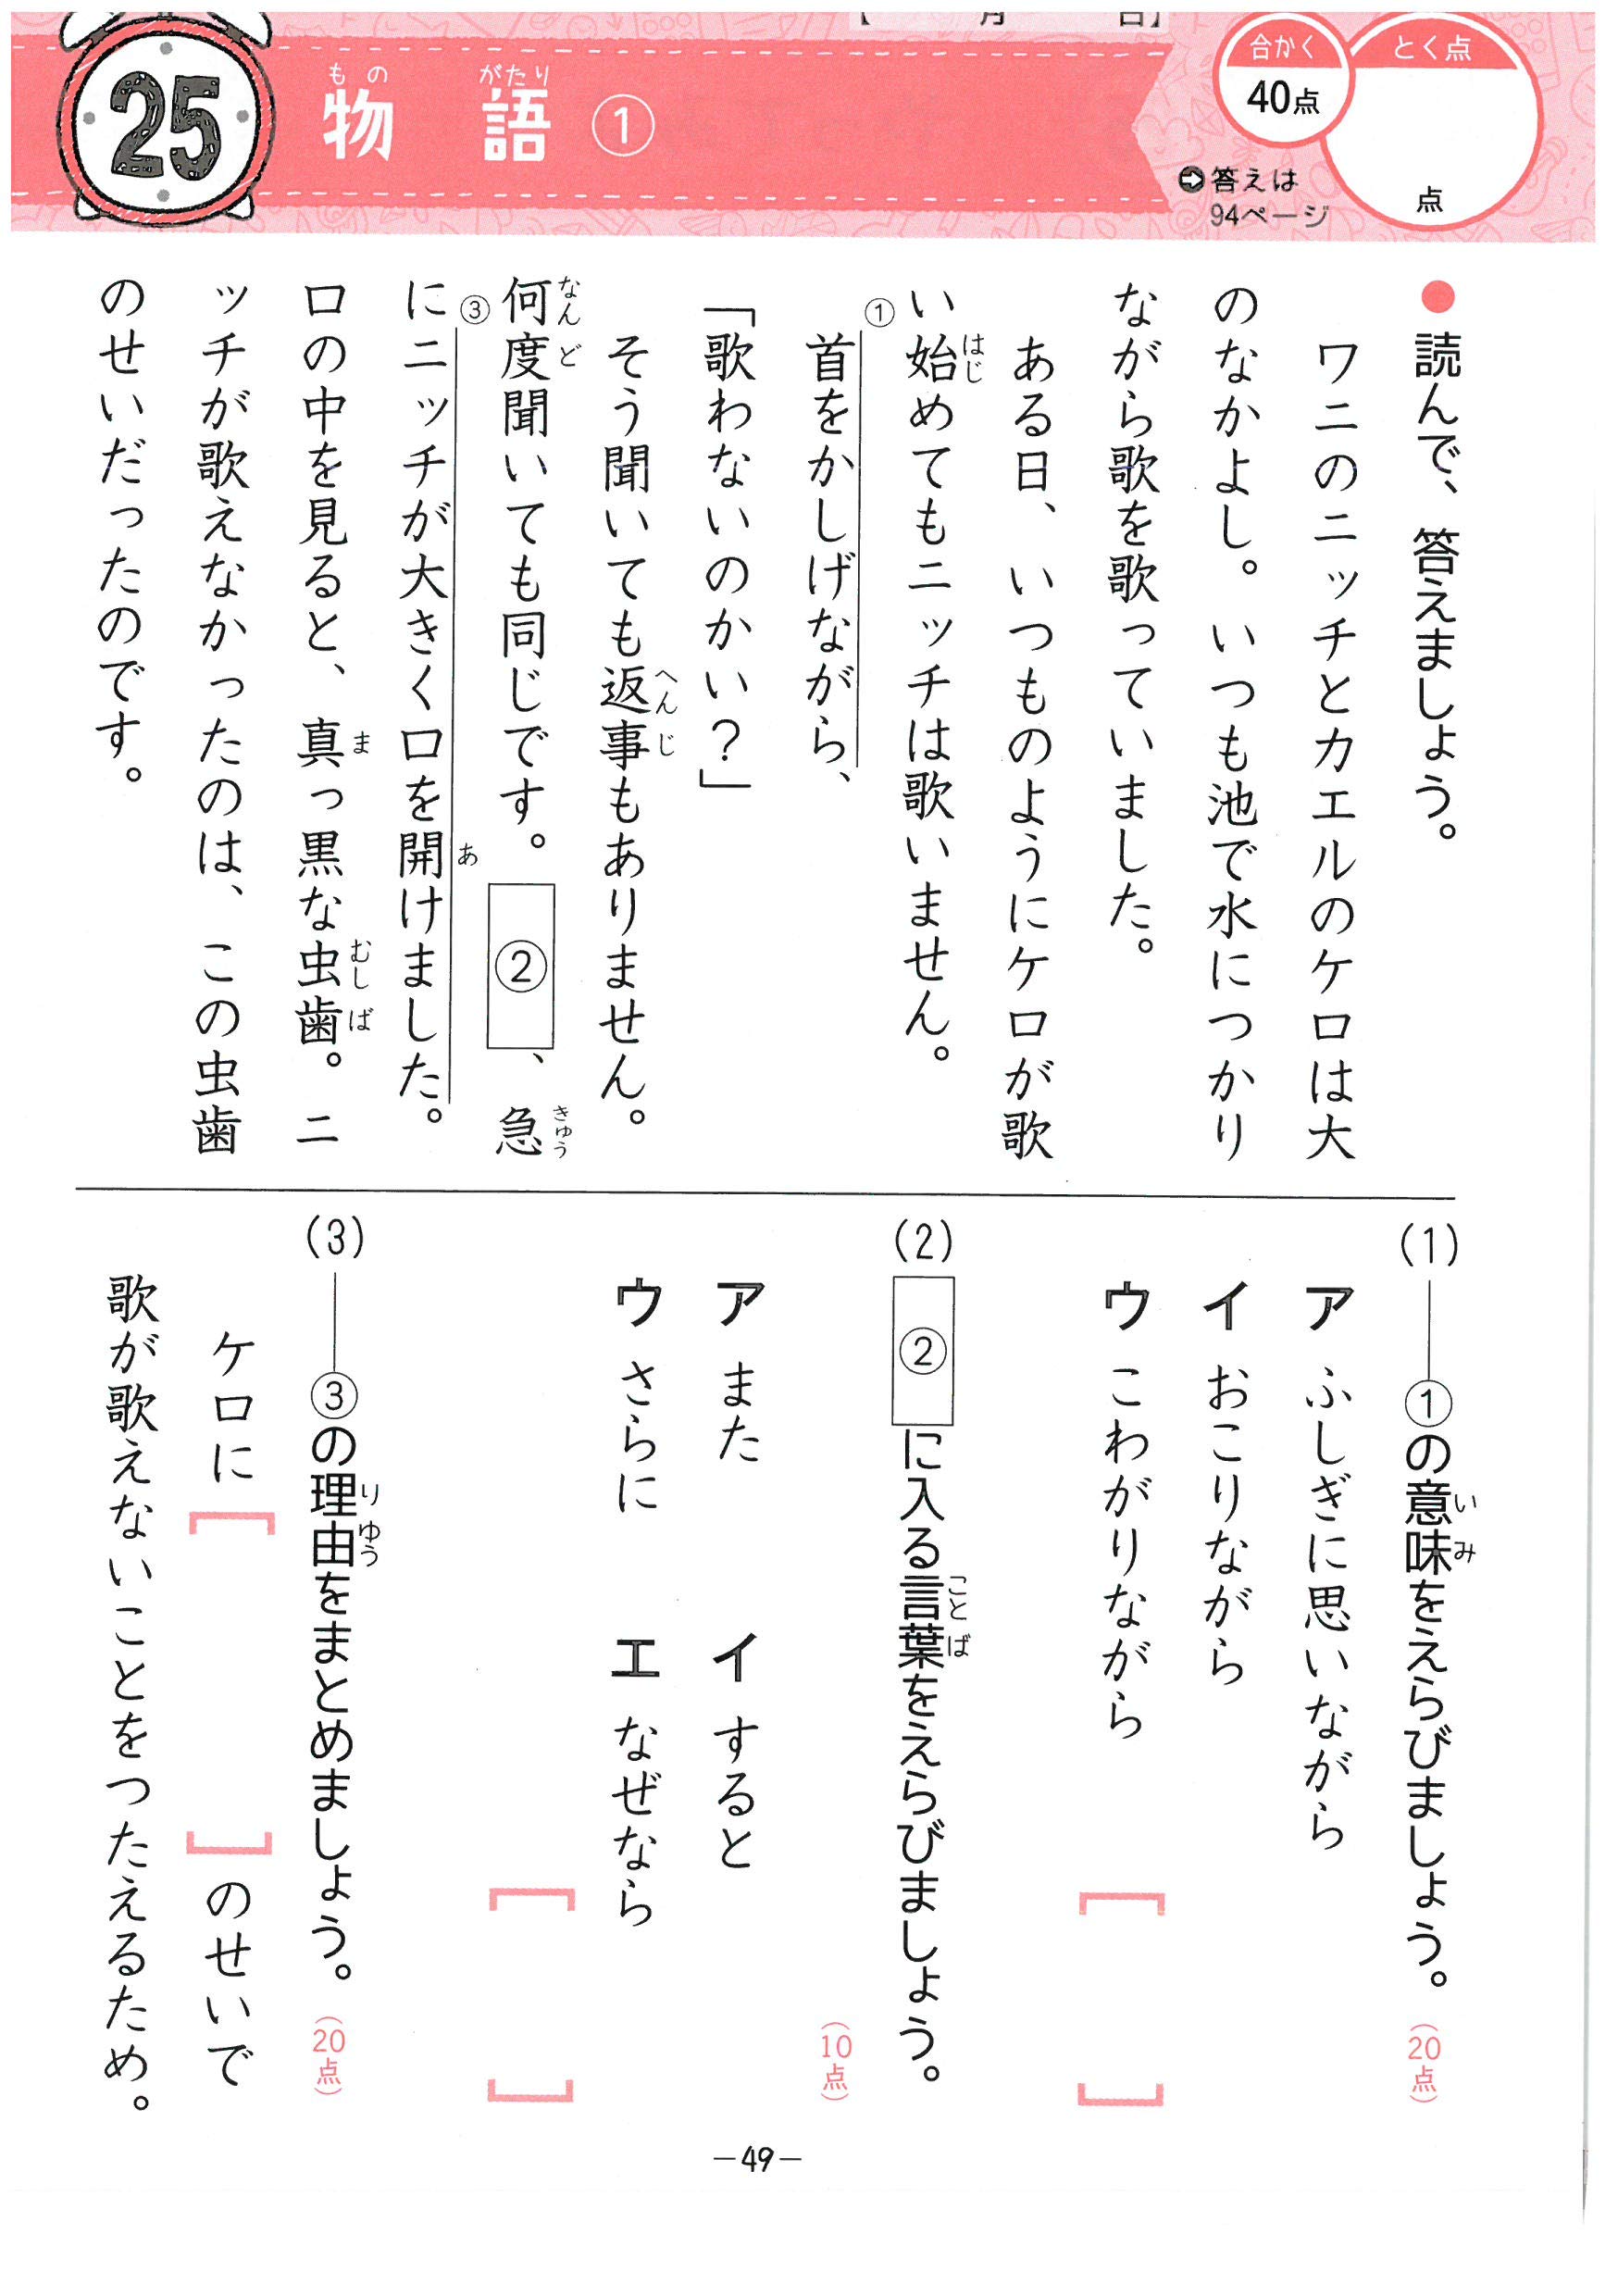 【　　月　　日】
25
物語①
ものがたり
合かく
40点
とく点
点
答えは
94ページ
●読んで、答えましょう。
ワニのニッチとカエルのケロは大
のなかよし。いつも池で水につかり
ながら歌を歌っていました。
ある日、いつものようにケロが歌
い始めてもニッチは歌いません。
はじ
①
首をかしげながら、
「歌わないのかい？」
そう聞いても返事もありません。
へんじ
何度聞いても同じです。②、急
なんど
きゅう
③
にニッチが大きく口を開けました。
あ
口の中を見ると、真っ黒な虫歯。ニ
ま
むしば
ッチが歌えなかったのは、この虫歯
のせいだったのです。
(1)――①の意味をえらびましょう。
いみ
(20点)
ア ふしぎに思いながら
イ おこりながら
ウ こわがりながら
[　　]
(2) ②に入る言葉をえらびましょう。
ことば
(10点)
ア また　イ すると
ウ さらに　エ なぜなら
[　　]
(3)――③の理由をまとめましょう。
りゆう
(20点)
ケロに[　　]のせいで
歌が歌えないことをつたえるため。
―49―